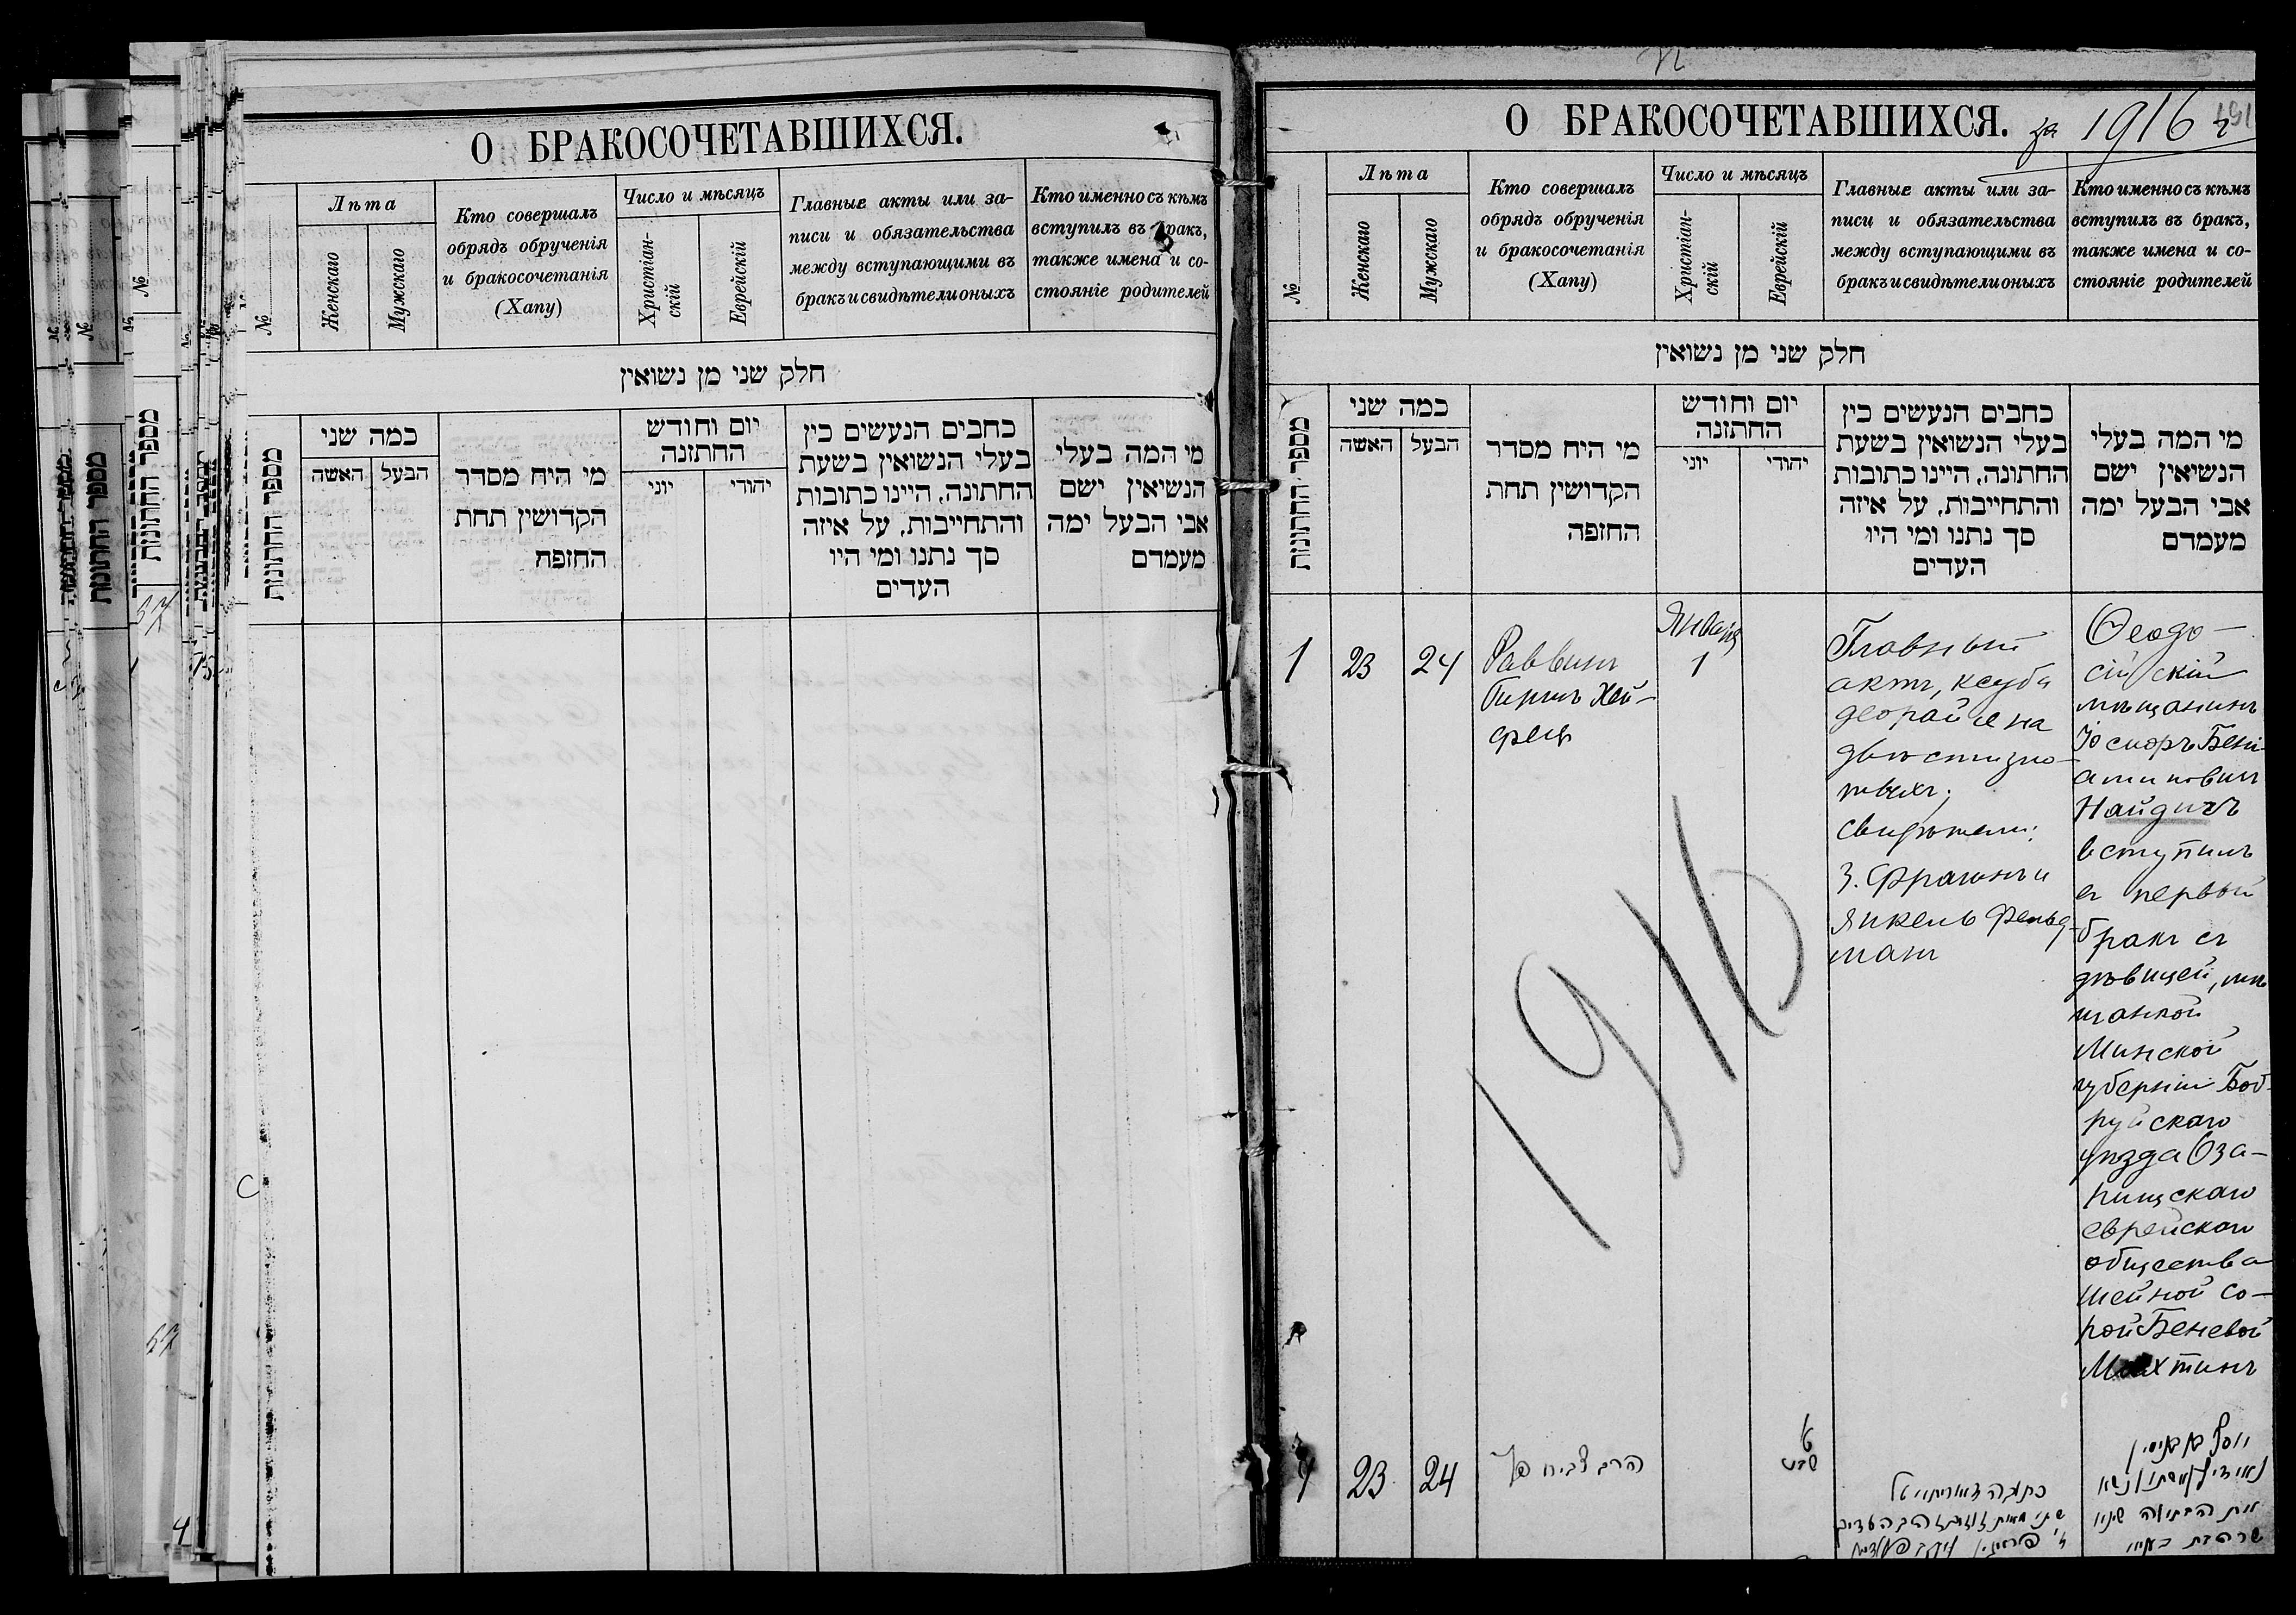 О БРАКОСОЧЕТАВШИХСЯ.
№
Лѣта
Женскаго
Мужскаго
Кто совершалъ
обрядъ обрученія
и бракосочетанія
(Хапу)
Число и мѣсяцъ
Христіан-
скій
Еврейскій
Главные акты или за-
писи и обязательства
между вступающими въ
бракъ и свидѣтели оныхъ
Кто именно съ кѣмъ
вступилъ въ бракъ,
также имена и со-
стояніе родителей
חלק שני מן נשואין
מספר החתונות
כמה שני
האשה
הבעל
מי היח מסדר
הקדושין תחת
החופת
יום וחודש
החתזנה
יוני
יהודי
כחבים הנעשים כין
בעלי הנשואין בשעת
החתונה, היינו כתובות
והתחייבות, על איזה
סך נתנו ומי היו
העדים
מי המה בעלי
הנשיאין ישם
אבי הבעל ימה
מעמדם
О БРАКОСОЧЕТАВШИХСЯ. за 1916 г
№
Лѣта
Женскаго
Мужскаго
Кто совершалъ
обрядъ обрученія
и бракосочетанія
(Хапу)
Число и мѣсяцъ
Христіан-
скій
Еврейскій
Главные акты или за-
писи и обязательства
между вступающими въ
бракъ и свидѣтели оныхъ
Кто именно съ кѣмъ
вступилъ въ бракъ,
также имена и со-
стояніе родителей
חלק שני מן נשואין
מספר החתונות
כמה שני
האשה
הבעל
מי היח מסדר
הקדושין תחת
החזפה
יום וחודש
החתזנה
יוני
יהודי
כחבים הנעשים כין
בעלי הנשואין בשעת
החתונה, היינו כתובות
והתחייבות, על איזה
סך נתנו ומי היו
העדים
מי המה בעלי
הנשיאין ישם
אבי הבעל ימה
מעמדם
1
23
24
Раввинъ
Хей-
фецъ
Января
1
Главный
актъ, ксуба
деорайше на
двѣсти зло-
тыхъ;
свидѣтели:
З. Фрагинъ и
Янкель Фельд-
манъ
Ѳеодо-
сійскій
мѣщанинъ
Іосифъ Бені-
аминовичъ
Найдичъ
вступилъ
въ первый
бракъ съ
дѣвицей, мѣ
щанкой
Минской
губерніи Боб-
руйскаго
уѣзда Оза-
ричскаго
еврейскаго
общества
Шейной Со-
рой Беневой
1916
23
24
הרב
ט
שבט
כתובה דאורייתא
יוסף בן בנימין
את הבתולה שיינא